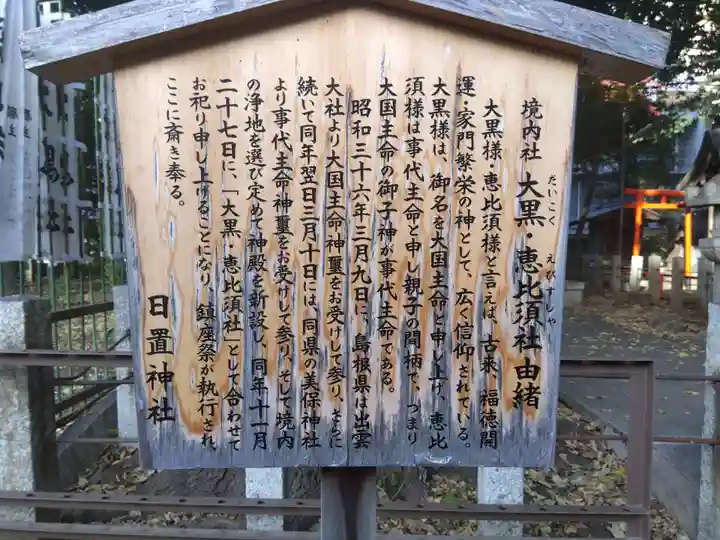 境内社 大黒・恵比須社 由緒
だいこく えびすしゃ
大黒様・恵比須様と言えば、古来、福徳開
運・家門繁栄の神として、広く信仰されている。
大黒様は、御名を大国主命と申し上げ、恵比
須様は事代主命と申し親子の間柄で、つまり
大国主命の御子神が事代主命である。
昭和三十六年三月九日に、島根県は出雲
大社より大国主命神璽をお受けして参り、さらに
続いて同年翌日三月十日には、同県の美保神社
より事代主命神璽をお受けして参り、そして境内
の浄地を選び定めて神殿を新設し、同年十一月
二十七日に、「大黒・恵比須社」として合わせて
お祀り申し上げることになり、鎮座祭が執行され、
ここに斎き奉る。
日置神社